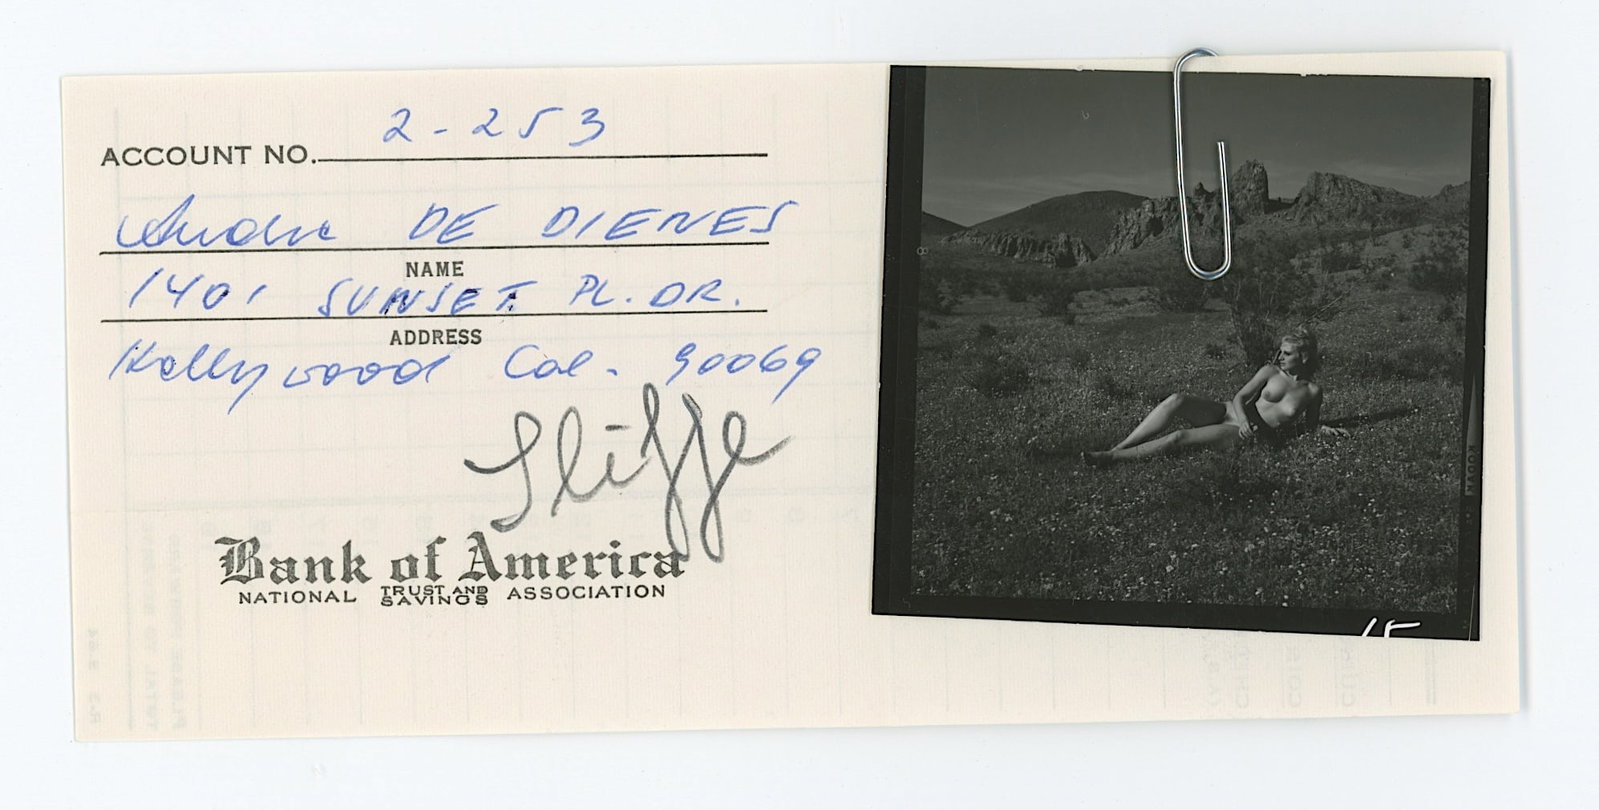 ACCOUNT NO. 2-253
Andre DE DIENES
NAME
1401 SUNSET PL. DR.
ADDRESS
Hollywood Cal. 90069
Bank of America
NATIONAL TRUST AND SAVINGS ASSOCIATION
15